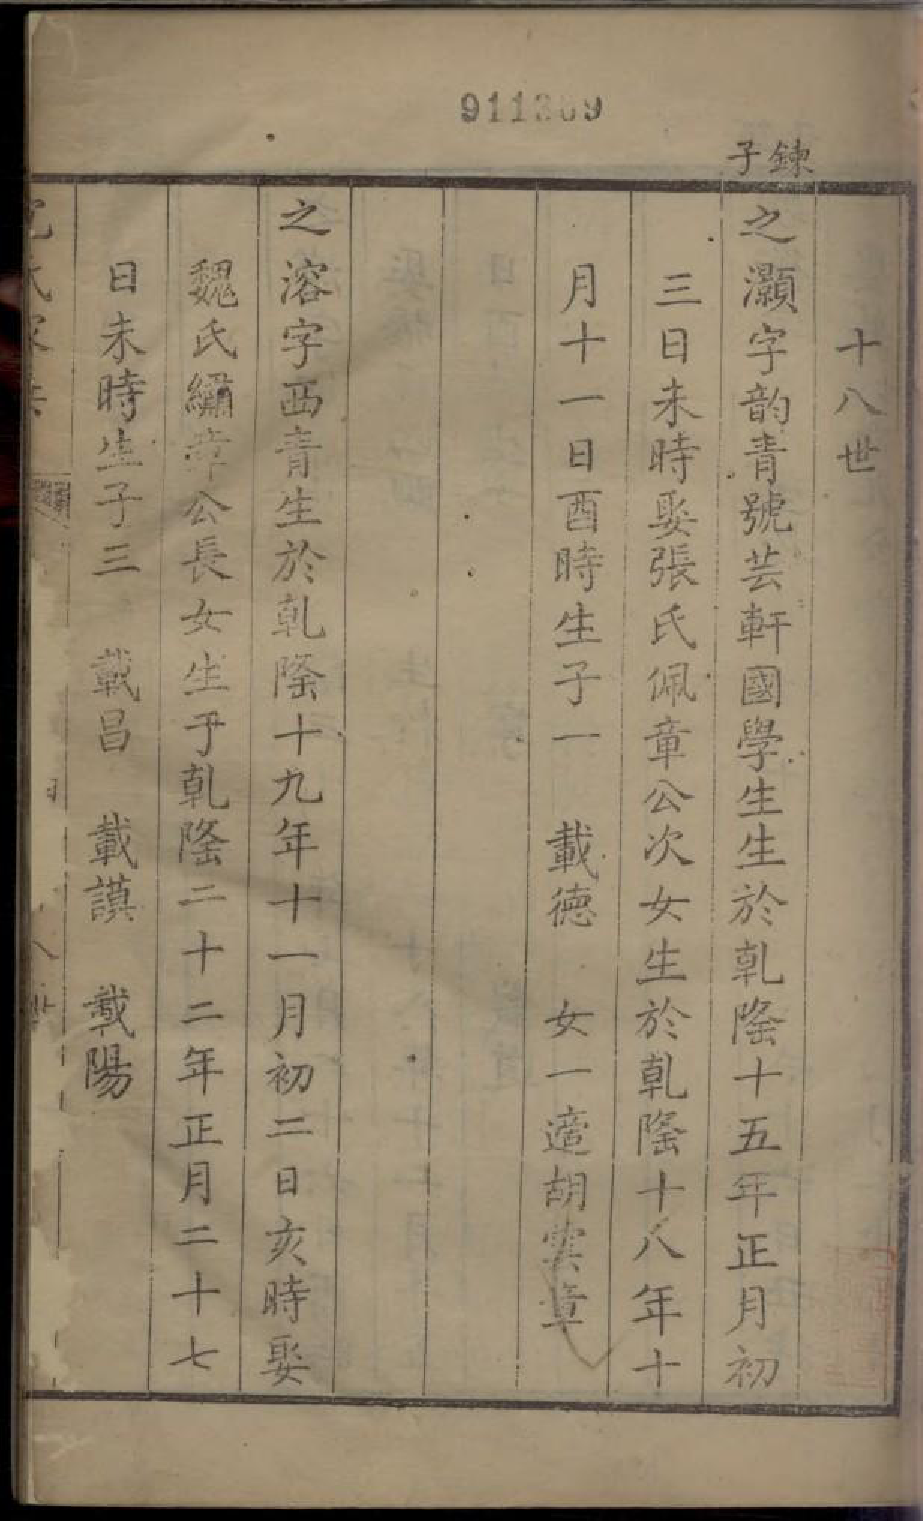 鍊子
十八世
之灝字韵青號芸軒國學生生於乹隆十五年正月初
三日未時娶張氏佩章公次女生於乹隆十八年十
月十一日酉時生子一　載德　女一適胡雲章
之溶字西青生於乹隆十九年十一月初二日亥時娶
魏氏繡章公長女生于乹隆二十二年正月二十七
日未時生子三　載昌　載謨　載陽